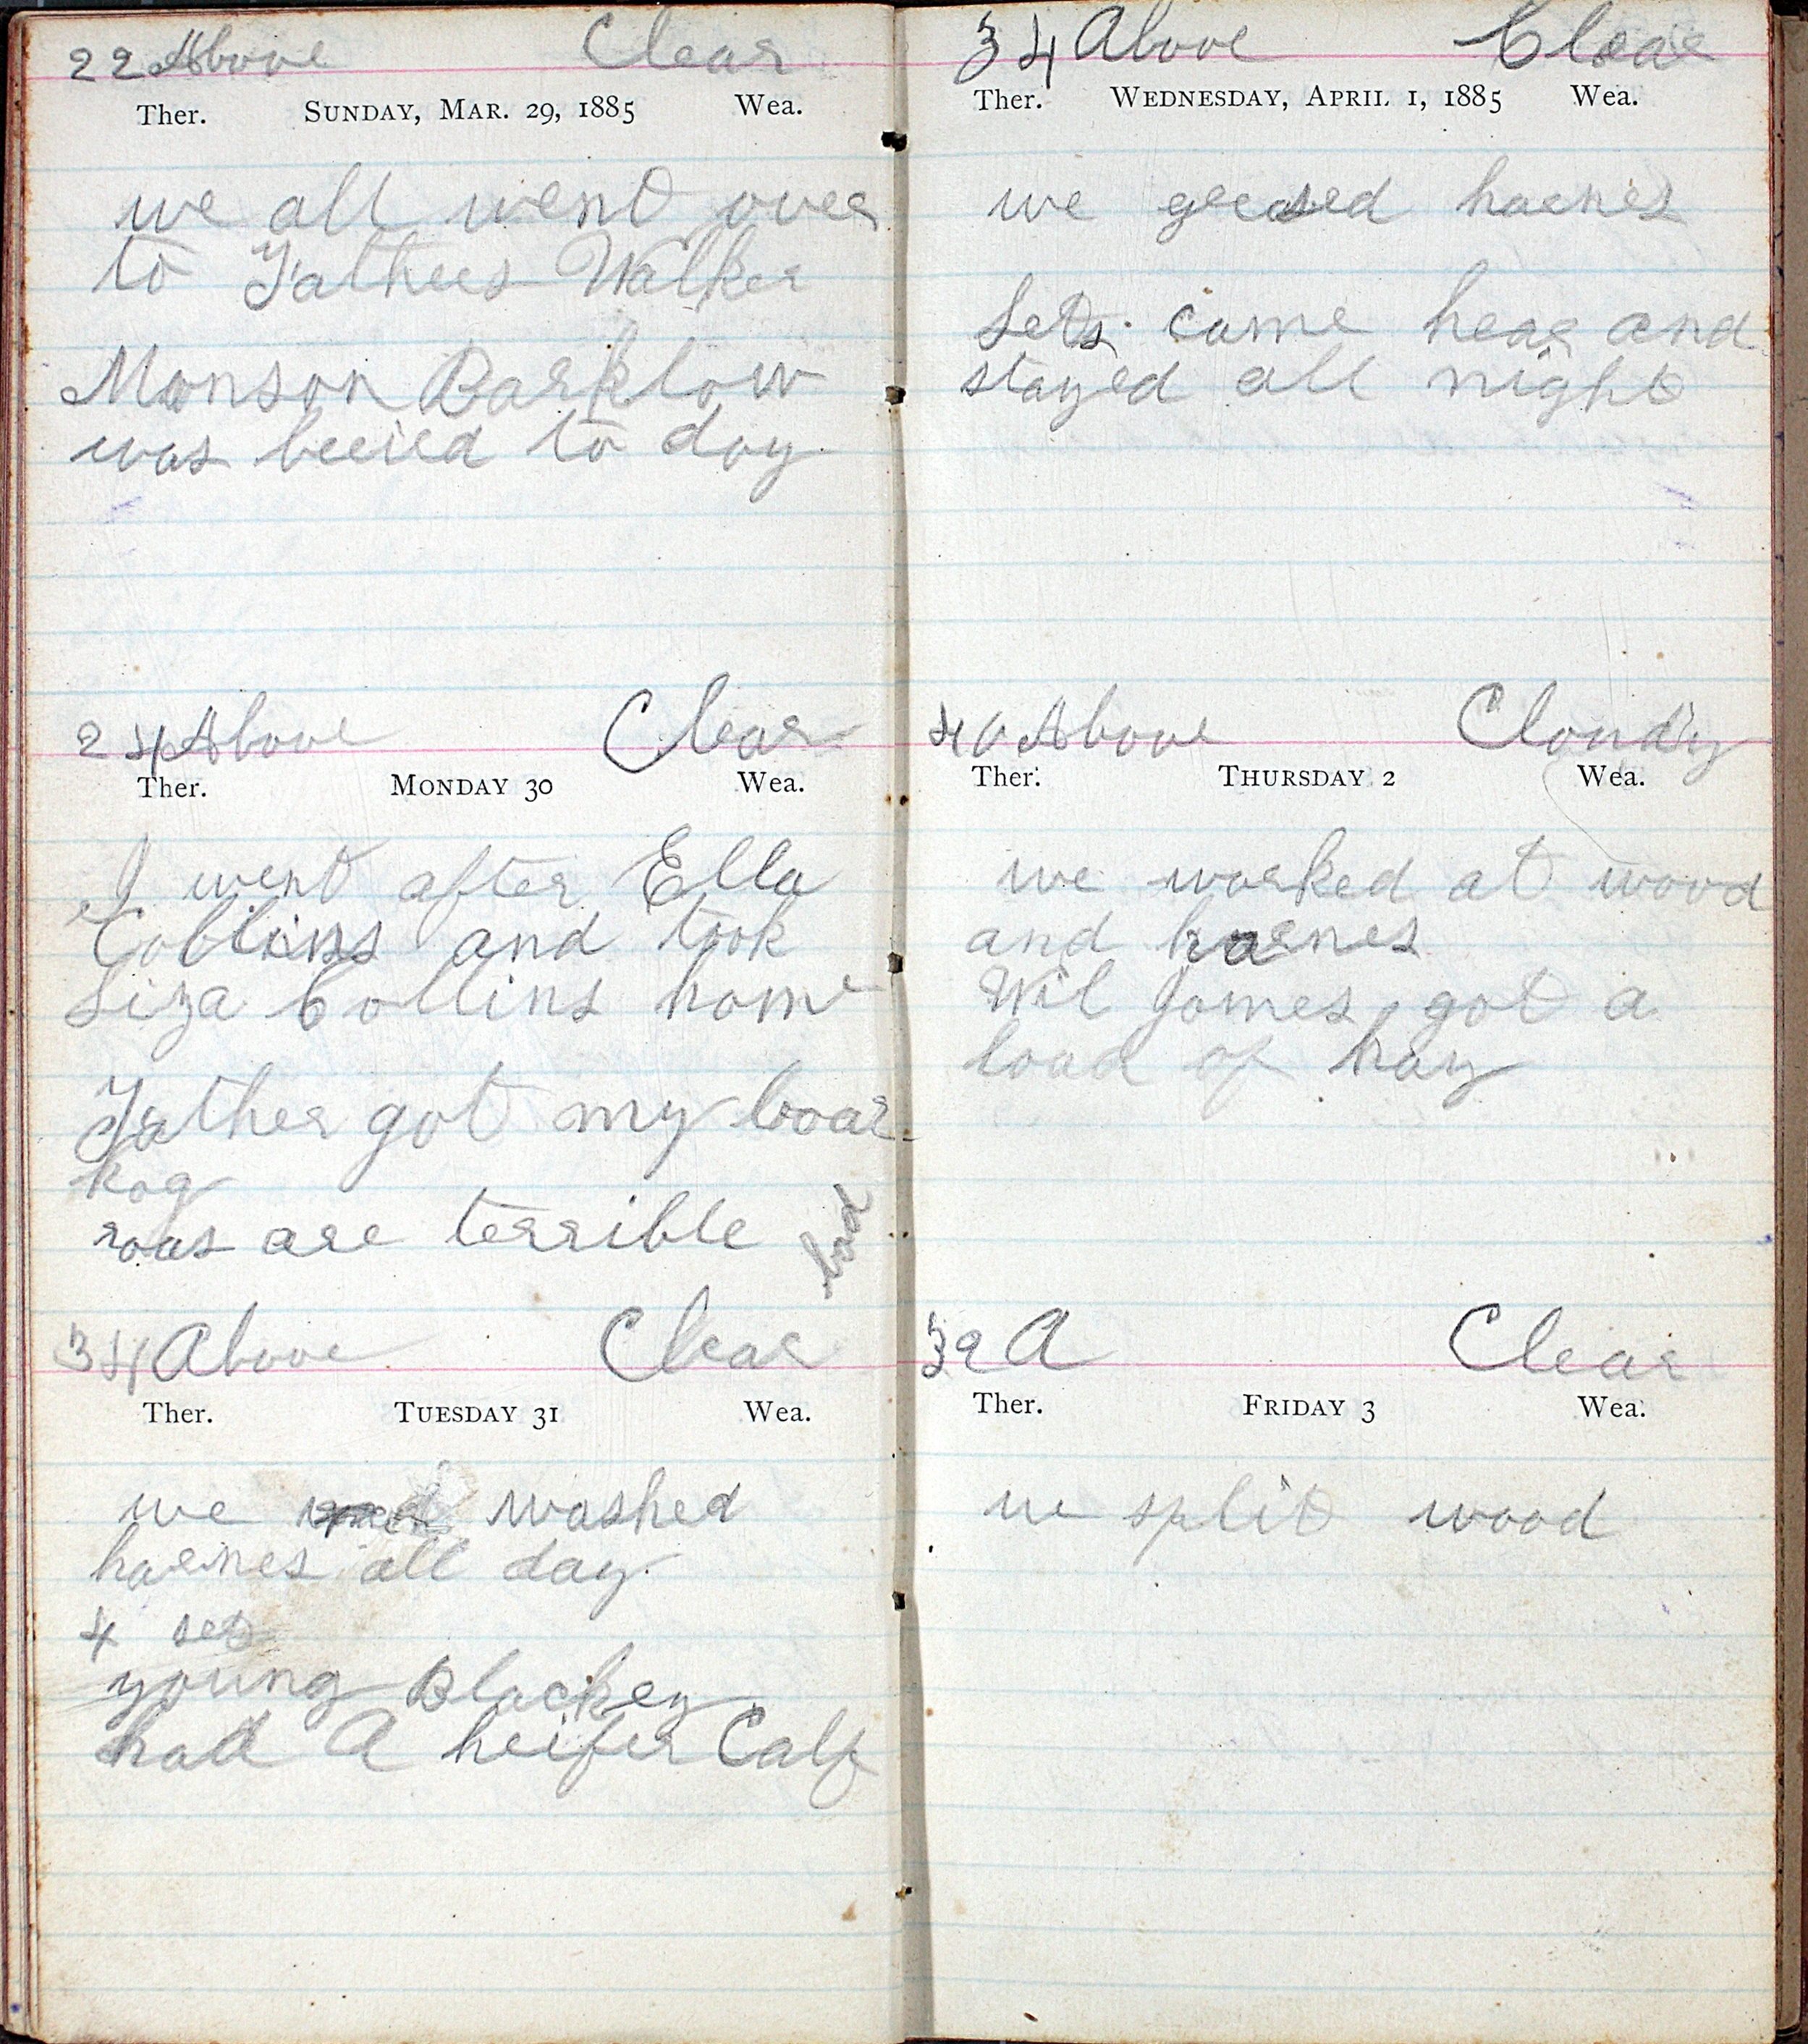 22 Above Clear
Ther. Sunday, Mar. 29, 1885 Wea.
we all went over
to Fathers Walker
Monson Barklow
was beeried to day
24 Above Clear
Ther. Monday 30 Wea.
I went after Ella
Collins and took
Liza Collins home
Father got my boar
hog
roas are terrible bad
34 Above Clear
Ther. Tuesday 31 Wea.
we washed
harnes all day
4 set
young Blackey
had A heifer Calf
34 Above Clear
Ther. Wednesday, April 1, 1885 Wea.
we greased harnes
Lets came hear and
stayed all night
40 Above Cloudy
Ther. Thursday 2 Wea.
we worked at wood
and harnes
Wil James got a
load of hay
39 A Clear
Ther. Friday 3 Wea.
we split wood